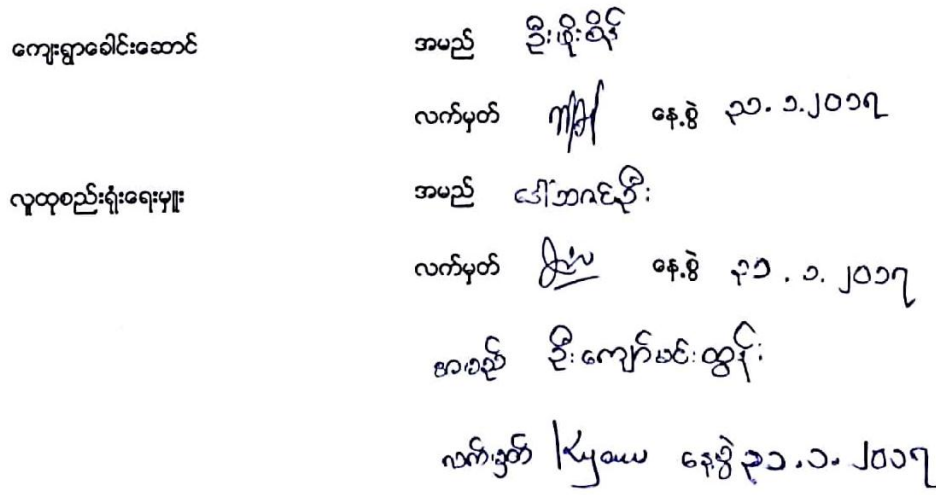 ကျေးရွာခေါင်းဆောင် အမည် ဦးဖိုးစိန်
လက်မှတ် နေ့စွဲ ၃၁.၁.၂၀၁၇
လူထုစည်းရုံးရေးမှူး အမည် ဒေါ်ဘဇင်ဦး
လက်မှတ် နေ့စွဲ ၃၁.၁.၂၀၁၇
အမည် ဦးကျော်မင်းထွန်း
လက်မှတ် Kyaw နေ့စွဲ ၃၁.၁.၂၀၁၇